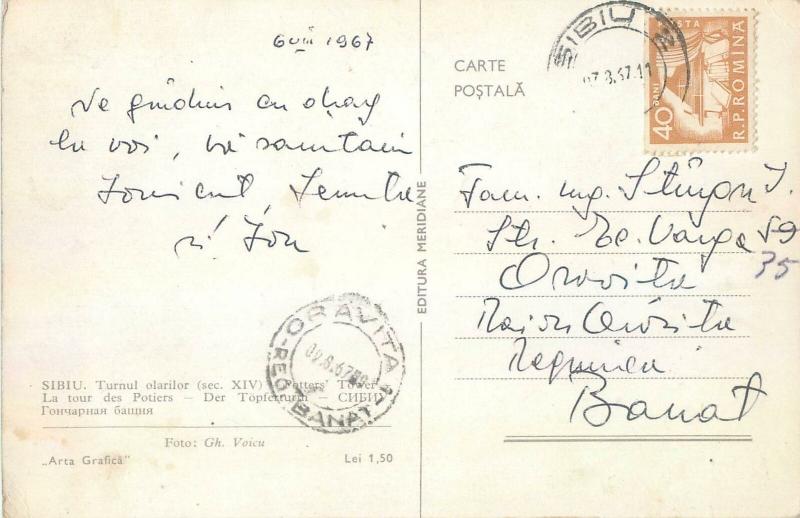 6 VIII 1967
Ne gîndim cu drag
la voi, vă sărutăm
Ionicuț, Lenuța
și Ion
SIBIU. Turnul olarilor (sec. XIV) – Potters' Tower
La tour des Potiers – Der Töpferturm – СИБИУ
Гончарная башня
Foto: Gh. Voicu
„Arta Grafică" Lei 1,50
EDITURA MERIDIANE
ORAVIȚA
09.8.67
REG BANAT
CARTE
POȘTALĂ
SIBIU 2
07.8.67.11
POSTA
40 BANI
R.P.ROMINA
Fam. ing. Stîngu I.
Str. Ec. Varga 59
35
Oravița
Raion Oravița
Regiunea
Banat